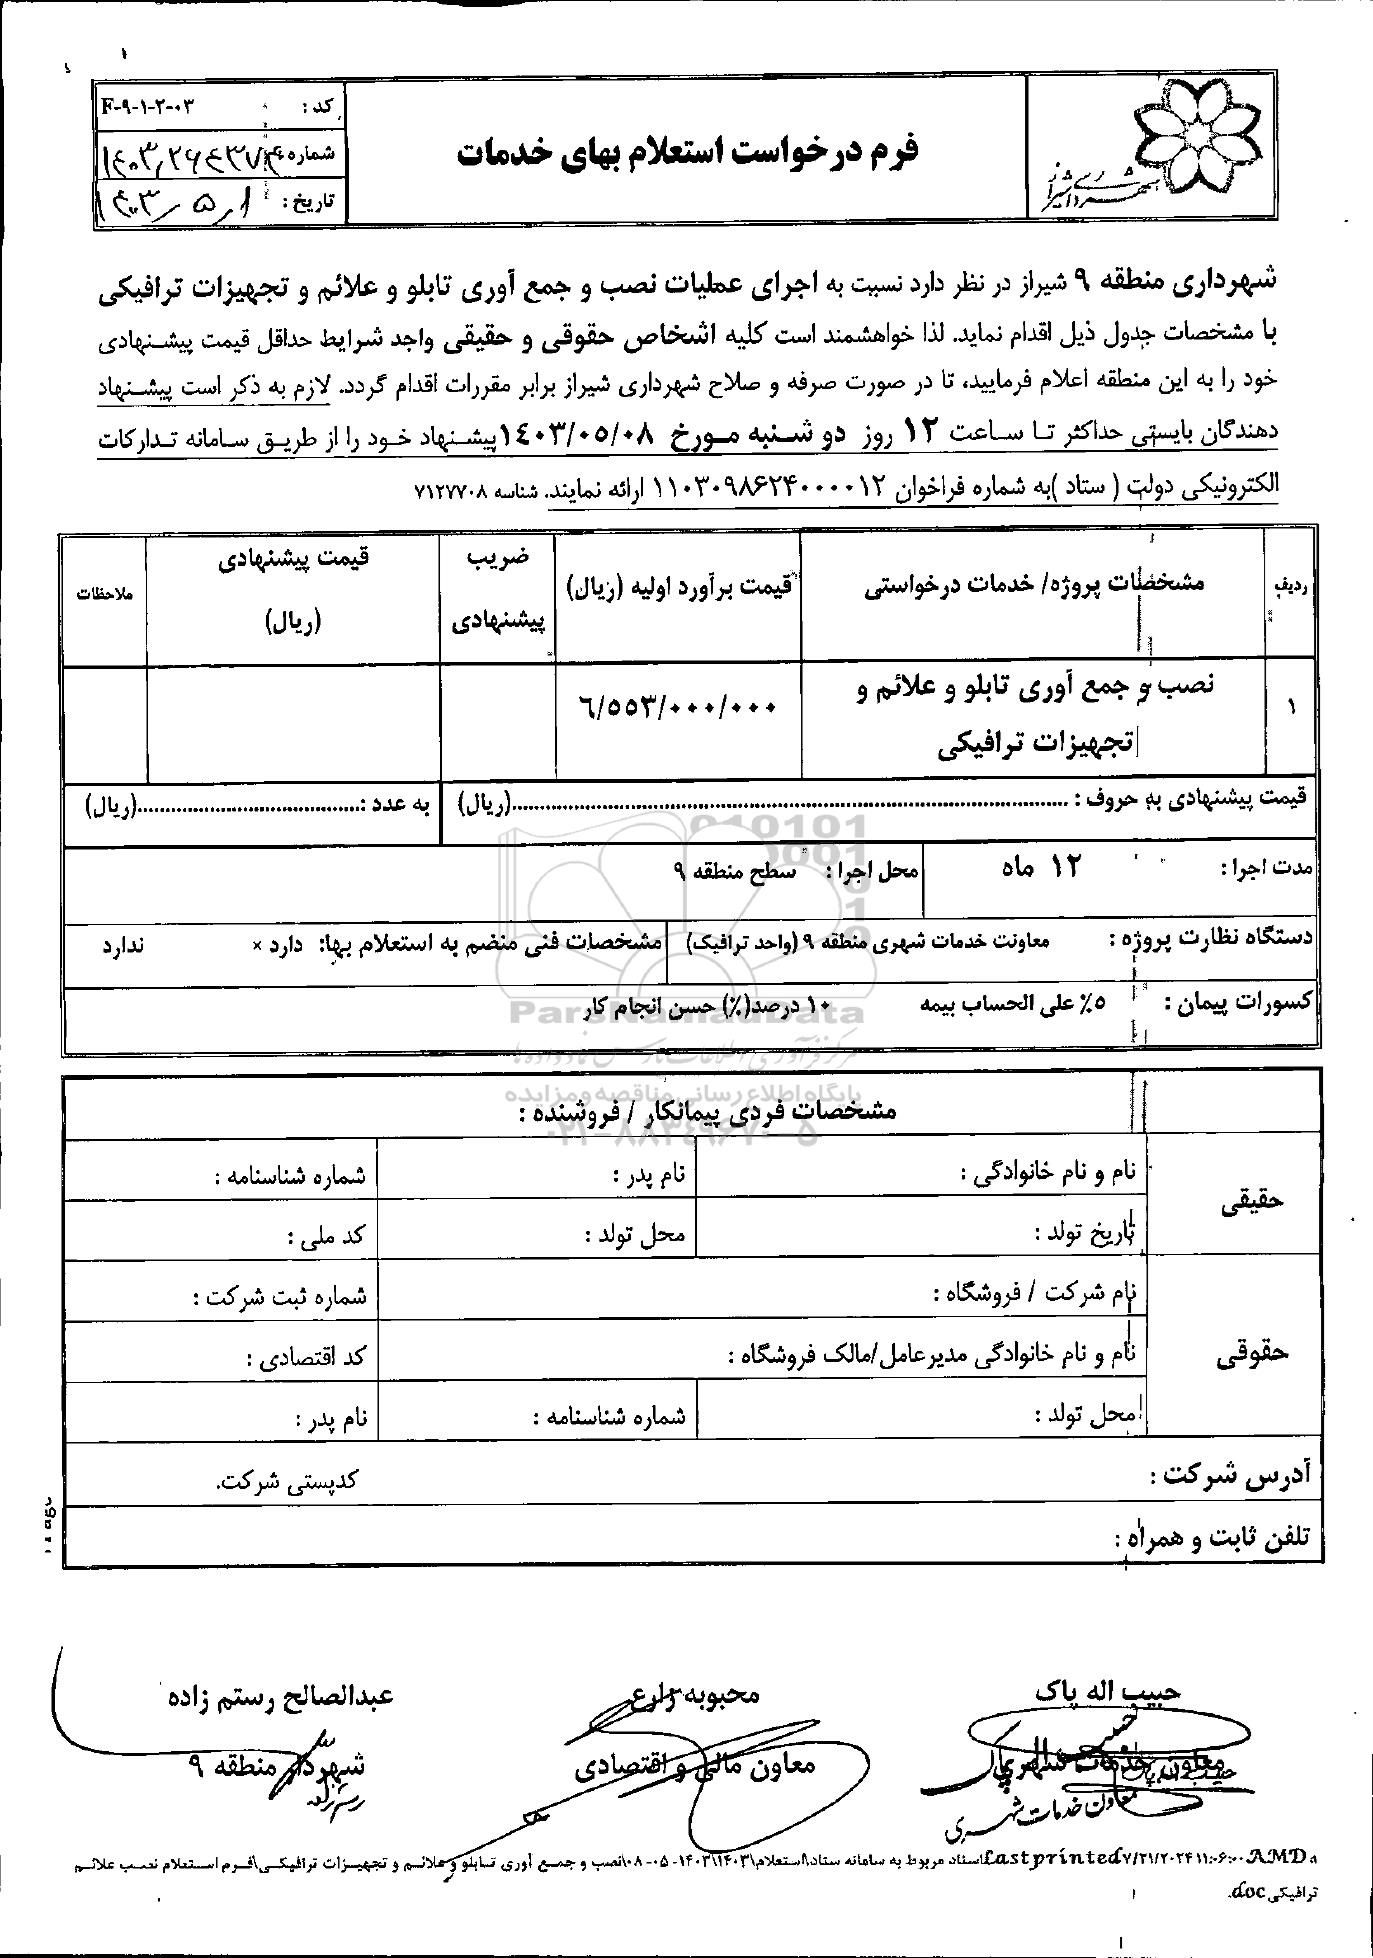 کد : F-۹-۱-۲-۰۳
شماره
تاریخ : ۱۴۰۳/۵/۱
فرم درخواست استعلام بهای خدمات
شهرداری شیراز
شهرداری منطقه ۹ شیراز در نظر دارد نسبت به اجرای عملیات نصب و جمع آوری تابلو و علائم و تجهیزات ترافیکی
با مشخصات جدول ذیل اقدام نماید. لذا خواهشمند است کلیه اشخاص حقوقی و حقیقی واجد شرایط حداقل قیمت پیشنهادی
خود را به این منطقه اعلام فرمایید، تا در صورت صرفه و صلاح شهرداری شیراز برابر مقررات اقدام گردد. لازم به ذکر است پیشنهاد
دهندگان بایستی حداکثر تا ساعت ۱۲ روز دو شنبه مورخ ۱۴۰۳/۰۵/۰۸ پیشنهاد خود را از طریق سامانه تدارکات
الکترونیکی دولت ( ستاد )به شماره فراخوان ۱۱۰۳۰۹۸۶۲۴۰۰۰۰۱۲ ارائه نمایند. شناسه ۷۱۲۷۷۰۸
ردیف
مشخصات پروژه/ خدمات درخواستی
قیمت برآورد اولیه (ریال)
ضریب
پیشنهادی
قیمت پیشنهادی
(ریال)
ملاحظات
۱
نصب و جمع آوری تابلو و علائم و
تجهیزات ترافیکی
۶/۵۵۳/۰۰۰/۰۰۰
قیمت پیشنهادی به حروف : ............(ریال)
به عدد :............(ریال)
مدت اجرا : ۱۲ ماه
محل اجرا : سطح منطقه ۹
دستگاه نظارت پروژه : معاونت خدمات شهری منطقه ۹ (واحد ترافیک)
مشخصات فنی منضم به استعلام بها: دارد × ندارد
کسورات پیمان : ۵٪ علی الحساب بیمه ۱۰ درصد(٪) حسن انجام کار
ParsNamadData
پایگاه اطلاع رسانی مناقصه و مزایده
مشخصات فردی پیمانکار / فروشنده :
حقیقی
نام و نام خانوادگی :
نام پدر :
شماره شناسنامه :
تاریخ تولد :
محل تولد :
کد ملی :
حقوقی
نام شرکت / فروشگاه :
شماره ثبت شرکت :
نام و نام خانوادگی مدیرعامل/مالک فروشگاه :
کد اقتصادی :
محل تولد :
شماره شناسنامه :
نام پدر :
آدرس شرکت :
کدپستی شرکت.
تلفن ثابت و همراه :
حبیب اله پاک
معاون خدمات شهری
محبوبه زارع
معاون مالی و اقتصادی
عبدالصالح رستم زاده
شهردار منطقه ۹
معاون خدمات شهری